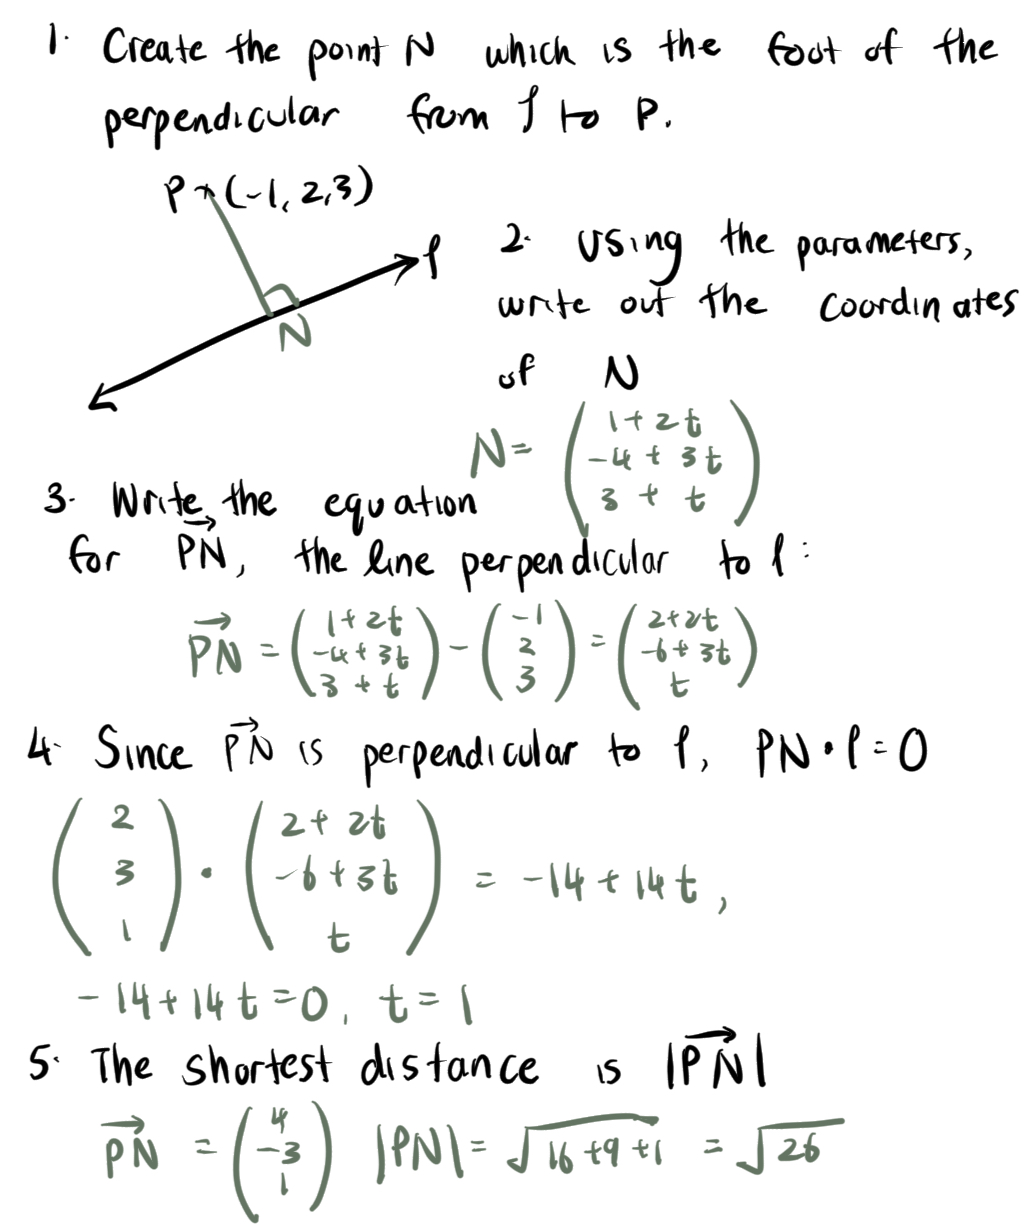 1. Create the point N which is the foot of the
perpendicular from l to P.
P (-1, 2, 3)
l
N
2. Using the parameters,
write out the coordinates
of N
N = (1 + 2t
-4 + 3t
3 + t)
3. Write the equation
for PN, the line perpendicular to l:
PN = (1 + 2t
-4 + 3t
3 + t) - (-1
2
3) = (2 + 2t
-6 + 3t
t)
4. Since PN is perpendicular to l, PN • l = 0
(2
3
1) • (2 + 2t
-6 + 3t
t) = -14 + 14t,
-14 + 14t = 0, t = 1
5. The shortest distance is |PN|
PN = (4
-3
1) |PN| = √16 + 9 + 1 = √26